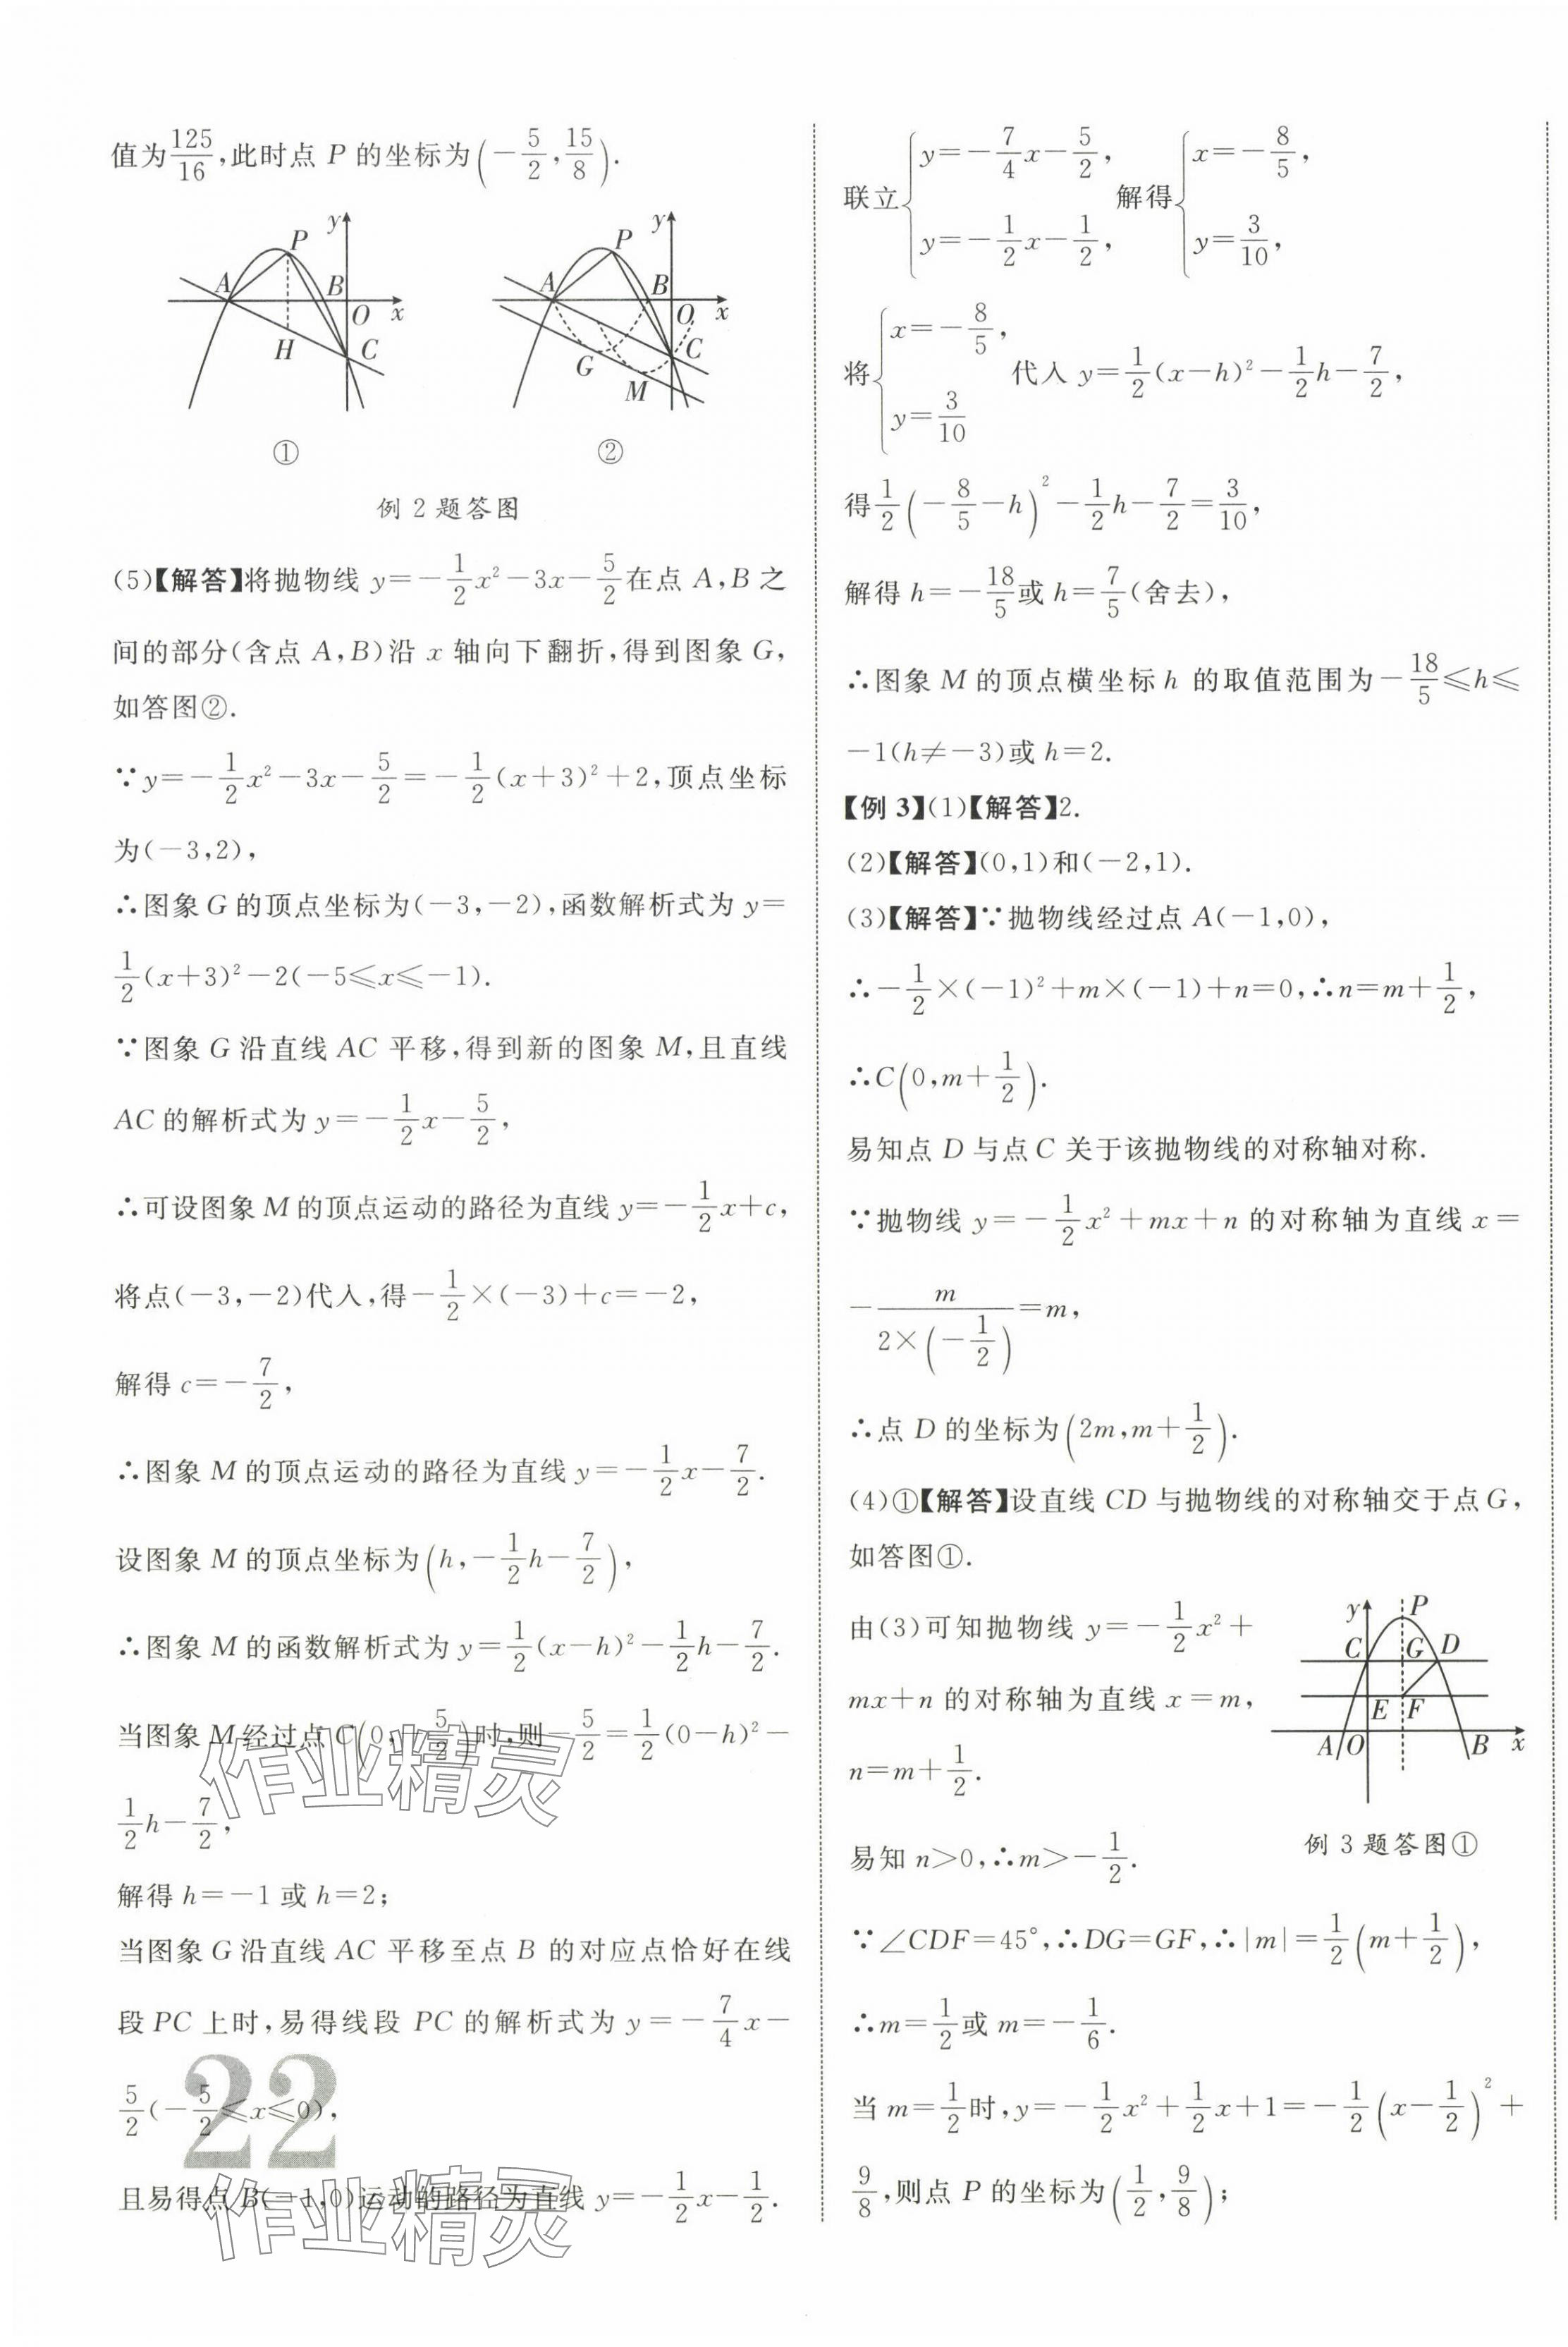 值为125/16,此时点 P 的坐标为(−5/2,15/8).
y P A B O x H C
①
y P A B O x G C M
②
例 2 题答图
(5)【解答】将抛物线 y=−1/2x²−3x−5/2在点 A,B 之
间的部分(含点 A,B)沿 x 轴向下翻折,得到图象 G,
如答图②.
∵y=−1/2x²−3x−5/2=−1/2(x+3)²+2,顶点坐标
为(−3,2),
∴图象 G 的顶点坐标为(−3,−2),函数解析式为 y=
1/2(x+3)²−2(−5≤x≤−1).
∵图象 G 沿直线 AC 平移,得到新的图象 M,且直线
AC 的解析式为 y=−1/2x−5/2,
∴可设图象 M 的顶点运动的路径为直线 y=−1/2x+c,
将点(−3,−2)代入,得−1/2×(−3)+c=−2,
解得 c=−7/2,
∴图象 M 的顶点运动的路径为直线 y=−1/2x−7/2.
设图象 M 的顶点坐标为(h,−1/2h−7/2),
∴图象 M 的函数解析式为 y=1/2(x−h)²−1/2h−7/2.
当图象 M 经过点 C(0,−5/2)时,则−5/2=1/2(0−h)²−
1/2h−7/2,
解得 h=−1 或 h=2;
当图象 G 沿直线 AC 平移至点 B 的对应点恰好在线
段 PC 上时,易得线段 PC 的解析式为 y=−7/4x−
5/2(−5/2≤x≤0),
且易得点 B(−1,0)运动的路径为直线 y=−1/2x−1/2.
22
作业精灵
作业精灵
联立{y=−7/4x−5/2, y=−1/2x−1/2, 解得{x=−8/5, y=3/10,
将{x=−8/5, y=3/10 代入 y=1/2(x−h)²−1/2h−7/2,
得1/2(−8/5−h)²−1/2h−7/2=3/10,
解得 h=−18/5或 h=7/5(舍去),
∴图象 M 的顶点横坐标 h 的取值范围为−18/5≤h≤
−1(h≠−3)或 h=2.
【例 3】(1)【解答】2.
(2)【解答】(0,1)和(−2,1).
(3)【解答】∵抛物线经过点 A(−1,0),
∴−1/2×(−1)²+m×(−1)+n=0,∴n=m+1/2,
∴C(0,m+1/2).
易知点 D 与点 C 关于该抛物线的对称轴对称.
∵抛物线 y=−1/2x²+mx+n 的对称轴为直线 x=
−m/(2×(−1/2))=m,
∴点 D 的坐标为(2m,m+1/2).
(4)①【解答】设直线 CD 与抛物线的对称轴交于点 G,
如答图①.
由(3)可知抛物线 y=−1/2x²+
mx+n 的对称轴为直线 x=m,
n=m+1/2.
易知 n>0,∴m>−1/2.
y P C G D E F A O B x
例 3 题答图①
∵∠CDF=45°,∴DG=GF,∴|m|=1/2(m+1/2),
∴m=1/2或 m=−1/6.
当 m=1/2时,y=−1/2x²+1/2x+1=−1/2(x−1/2)²+
9/8,则点 P 的坐标为(1/2,9/8);